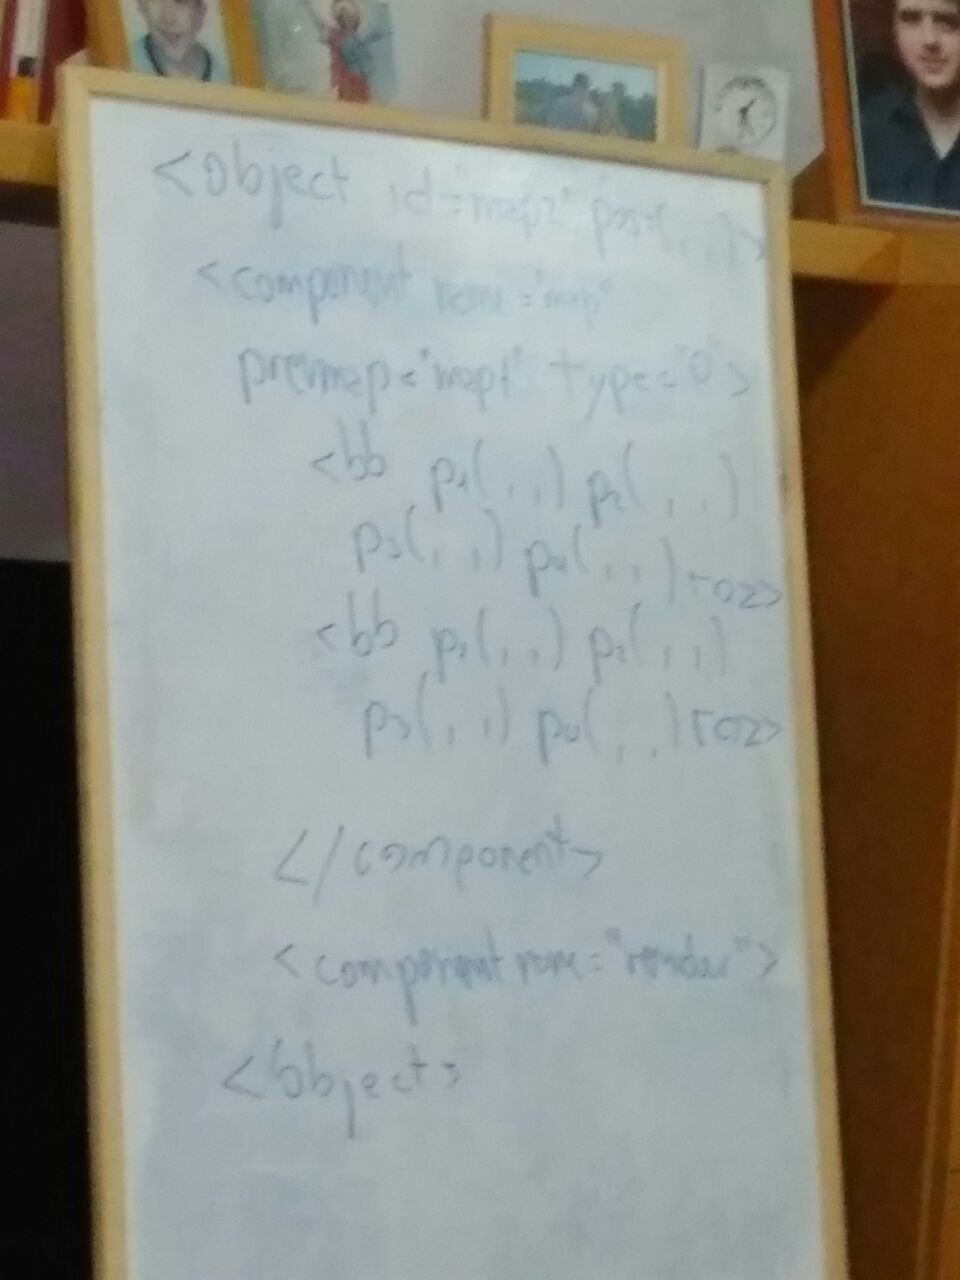 <object id="map2" pos=(, , )>
<component name="map"
prevmap="map1" type="0">
<bb p1(, , ) p2(, , )
p3(, , ) p4(, , ) roz>
<bb p1(, , ) p2(, , )
p3(, , ) p4(, , ) roz>
</component>
<component name="render">
</object>